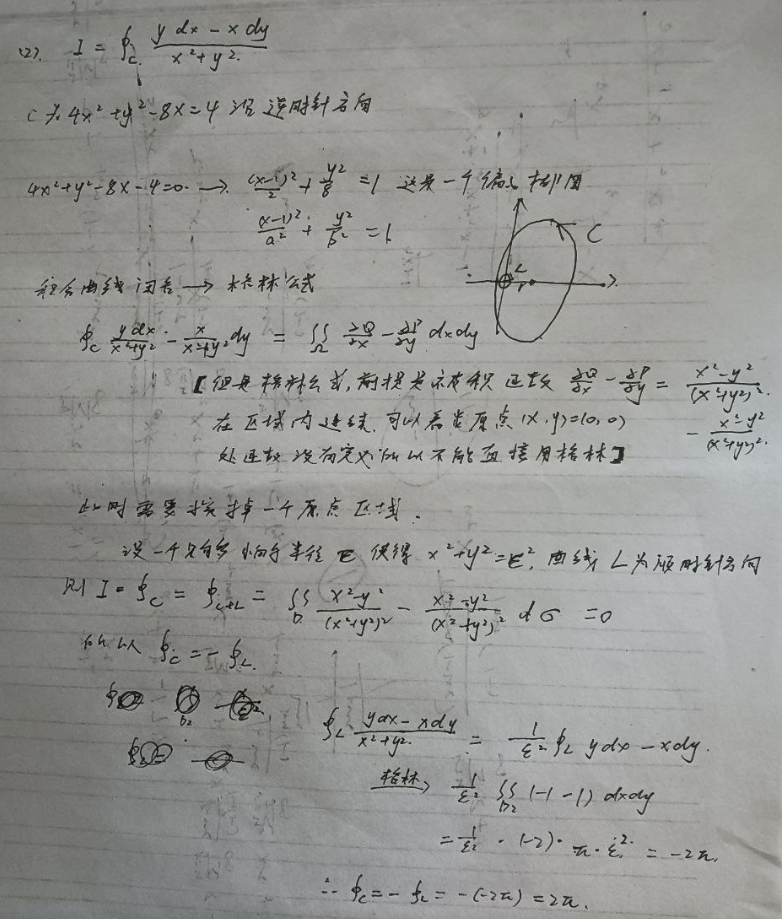 (2). I = ∮_C (y dx - x dy)/(x²+y²)
C为 4x²+y²-8x=4 沿逆时针方向
4x²+y²-8x-4=0 → (x-1)²/2 + y²/8 = 1 这是一个偏心椭圆
(x-1)²/a² + y²/b² = 1
C
L
1
积分曲线闭合 → 格林公式
∮_C y dx/(x²+y²) - x/(x²+y²) dy = ∬_Ω ∂Q/∂x - ∂P/∂y dxdy
【但是格林公式,前提是被积函数 ∂Q/∂x - ∂P/∂y = (x²-y²)/(x²+y²)²
在区域内连续,可以看出原点(x,y)=(0,0) - (x²-y²)/(x²+y²)²
处函数没有定义 所以不能直接用格林】
此时需要挖掉一个原点区域.
设一个足够小的半径 ε 使得 x²+y²=ε², 曲线L为顺时针方向
则 I = ∮_C = ∮_{C+L} = ∬_D (x²-y²)/(x²+y²)² - (x²-y²)/(x²+y²)² dσ = 0
所以 ∮_C = -∮_L.
∮_L (ydx-xdy)/(x²+y²) = 1/ε² ∮_L ydx-xdy.
格林→ 1/ε² ∬_{D₂} (-1-1) dxdy
= 1/ε² · (-2) · π · ε² = -2π.
∴ ∮_C = -∮_L = -(-2π) = 2π.